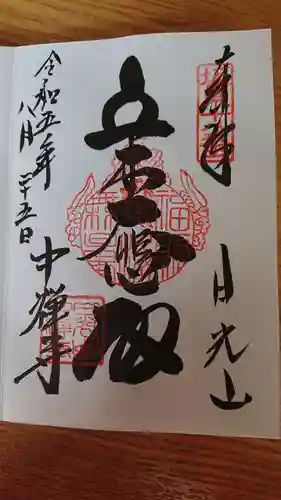 奉拝
日光山
立木大悲殿
令和五年
八月二十五日
中禅寺